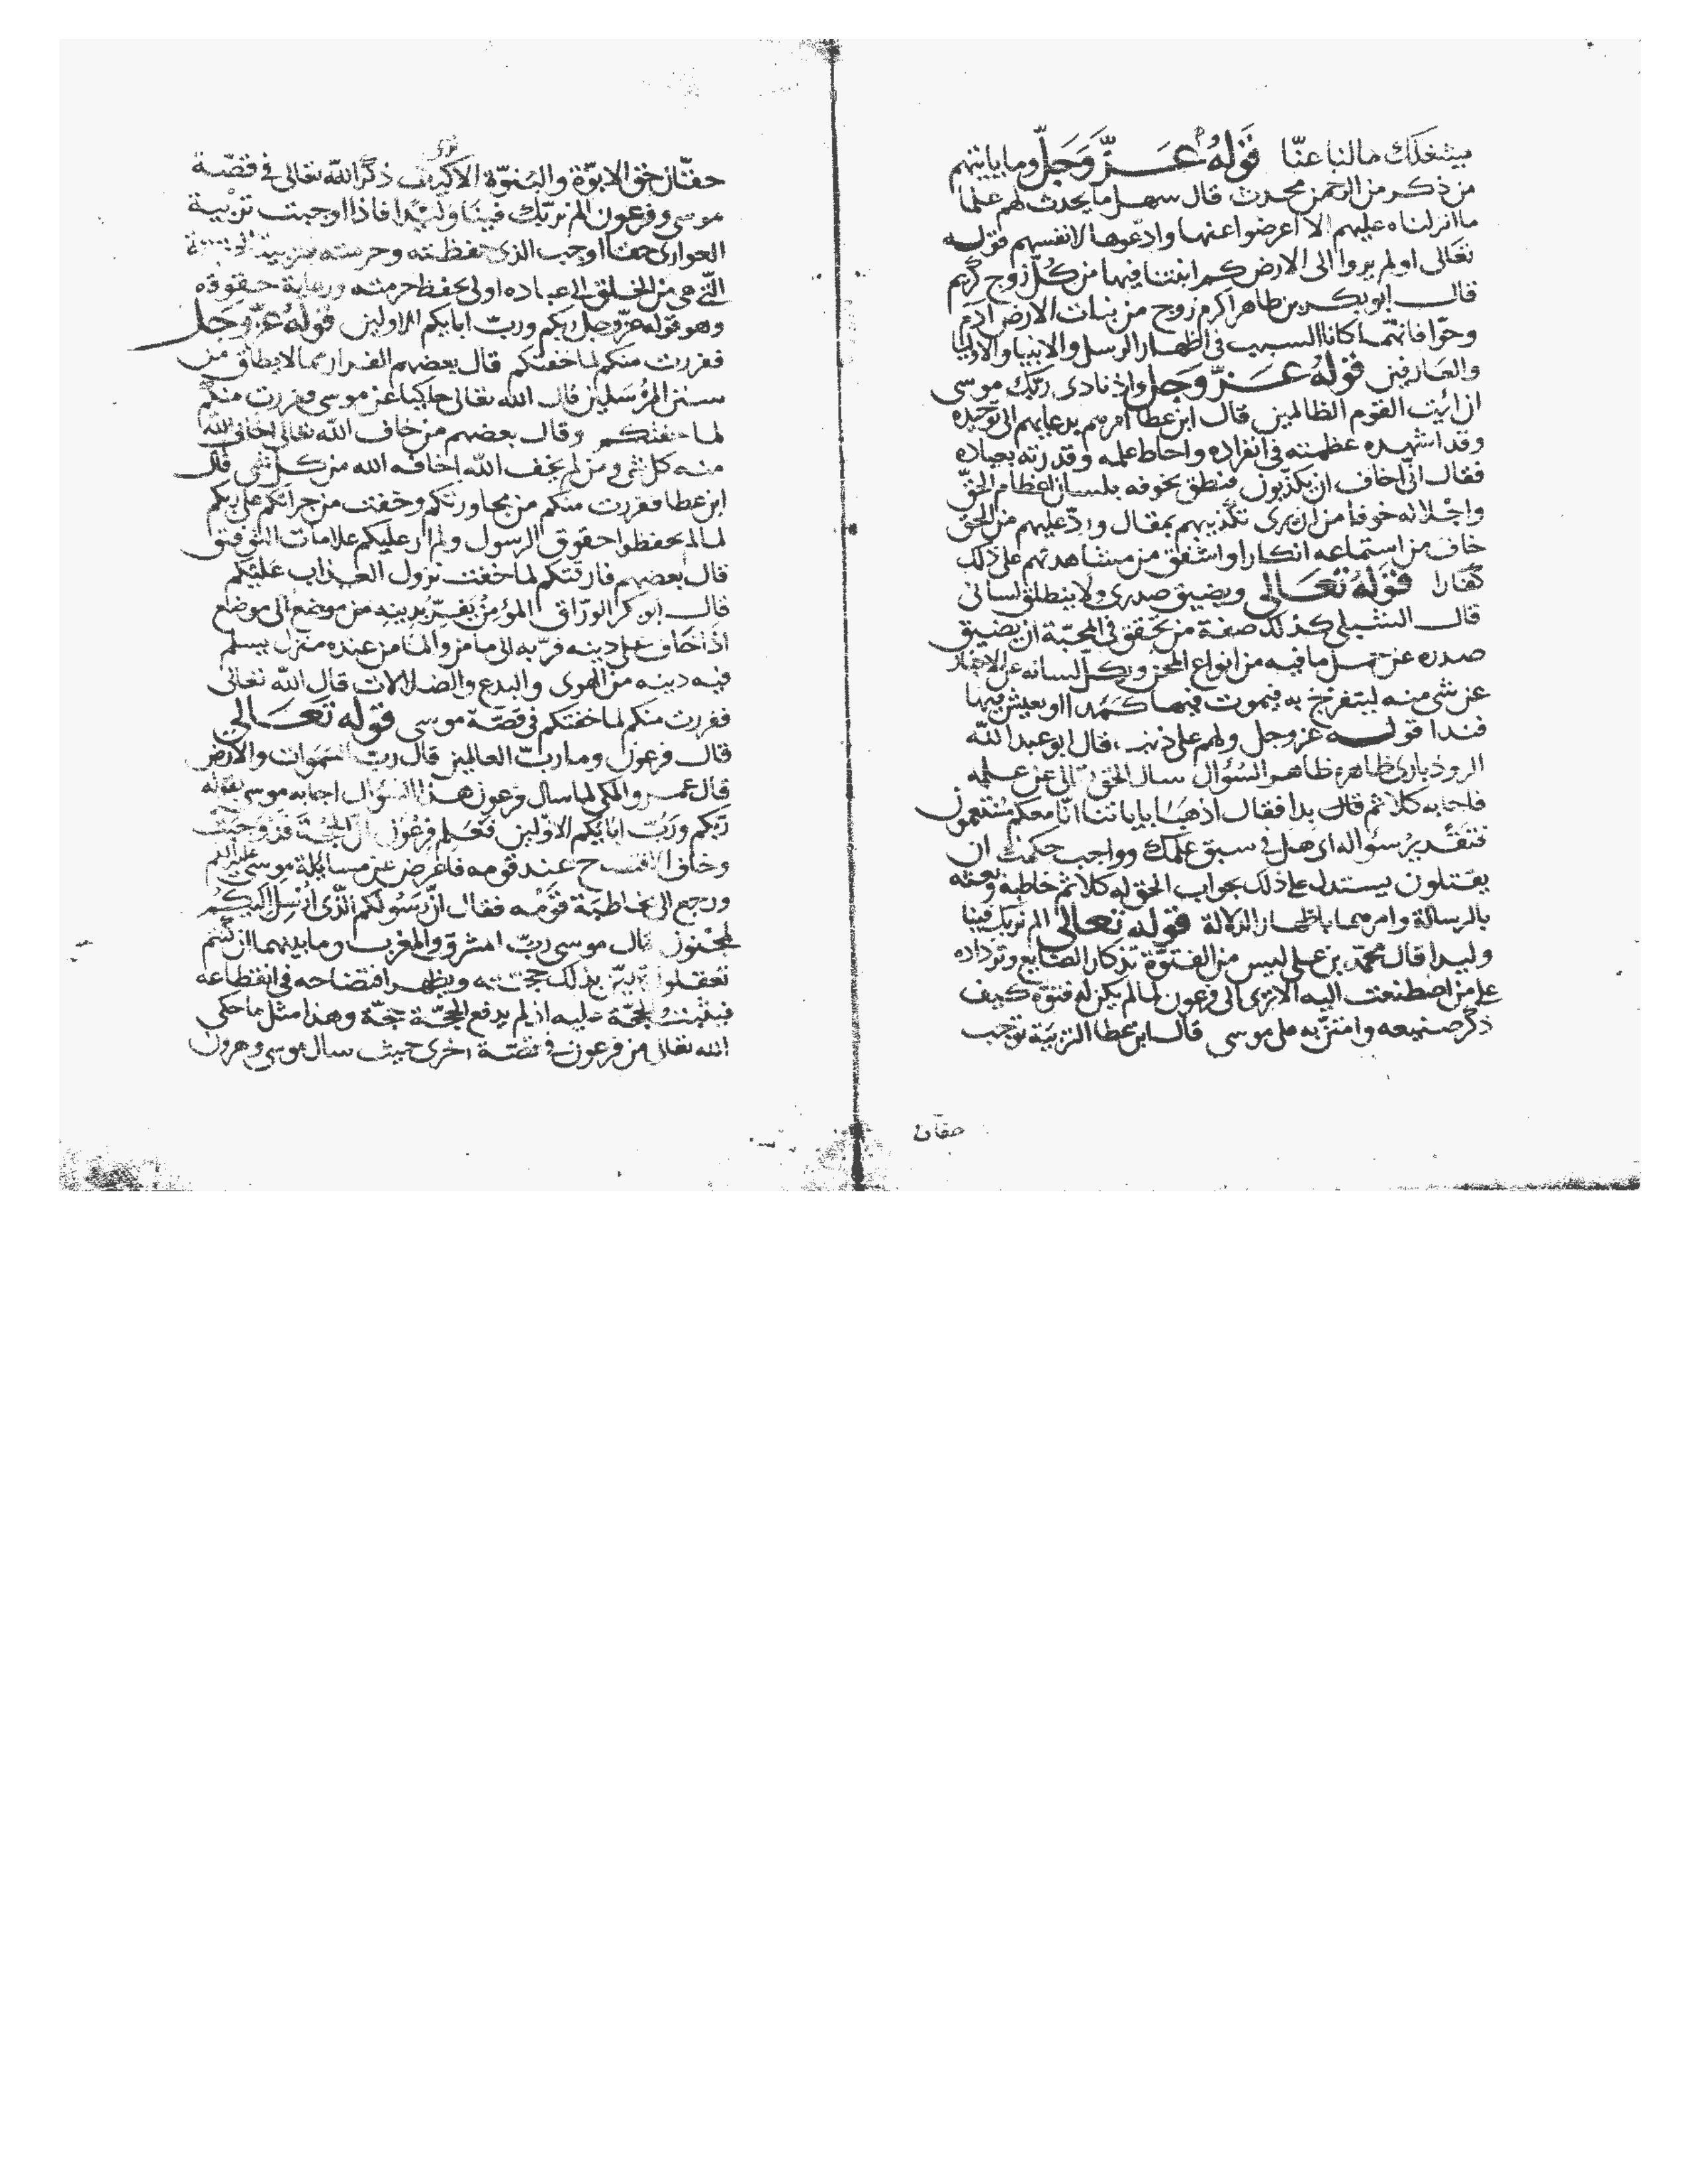 يشغلك مالنا عنا قوله عز وجل وما ياتيهم
من ذكر من الرحمن محدث قال سهل ما يحدث لهم علما
ما انزلناه عليهم الا اعرضوا عنها وادعوها لانفسهم قوله
تعالى اولم يروا الى الارض كم انبتنا فيها من كل زوج كريم
قال ابو بكر بن طاهر اكرم زوج من نبات الارض ادم
وحوا فانهما كانا السبب في اظهار الرسل والانبيا والاوليا
والعارفين قوله عز وجل واذ نادى ربك موسى
ان ائت القوم الظالمين قال ابن عطا امرهم بدعايهم الى توحيده
وقد اشهده عظمته في انفراده واحاط علمه وقدرته بعباده
فقال انى اخاف ان يكذبون فنطق بخوفه بلسان اعظام الحق
واجلاله خوفا من ان يرى تكذيبهم بمقال ورد عليهم من الحق
خاف من استماعه انكارا واشفق من مشاهدتهم على ذلك
كفارا قوله تعالى ويضيق صدرى ولا ينطلق لسانى
قال الشبلي كذلك صفة من تحقق في المحبة ان يضيق
صدره عن حمل ما فيه من انواع المحن ويكل لسانه عن الاخبار
عن شى منه ليتفرج به فيموت فيها كمدا او يعيش فيها
فندا قوله عز وجل ولهم على ذنب قال ابو عبد الله
الروذبارى ظاهره ظاهر السؤال سال الحق تعالى عن علمه
فاجابه كلا ثم قال بدا فقال اذهبا باياتنا انا معكم مستمعون
فتقدير سؤاله اى هل في سبق علمك وواجب حكمتك ان
يقتلون يستدل على ذلك بجواب الحق له كلا ثم خاطبه وبعثه
بالرسالة وامرهما باظهار الدلالة قوله تعالى الم نربك فينا
وليدا قال محمد بن على ليس من الفتوة تذكار الصنايع وترداده
على من اصطنعت اليه الا ترى الى فرعون لما لم يكن له فتوة كيف
ذكر صنيعه وامتن به على موسى قال ابن عطا التربية توجب
حقان
حقا من حق الابوة والبنوة الا كيف ذكر الله تعالى في قصة
موسى وفرعون الم نربك فينا وليدا فاذا اوجبت تربية
العوارى حقا اوجب الذى حفظته وحرسته تربية
التى هى من الخلق الى عباده اولى بحفظ حرمته ورعاية حقوقه
وهو قوله عز وجل ربكم ورب ابايكم الاولين قوله عز وجل
ففررت منكم لما خفتكم قال بعضهم الفرار مما لا يطاق من
سنن المرسلين قال الله تعالى حاكيا عن موسى ففررت منكم
لما خفتكم وقال بعضهم من خاف الله تعالى اخاف الله
منه كل شى ومن لم يخف الله اخافه الله من كل شى قال
ابن عطا ففررت منكم من مجاورتكم وخفت من جراتكم على ربكم
لما لم تحفظوا حقوق الرسول ولم ار عليكم علامات التوفيق
قال بعضهم فارقتكم لما خفت نزول العذاب عليكم
قال ابو بكر الوراق المؤمن يفر بدينه من موضع الى موضع
اذا خاف على دينه فر به الى مامن والمامن عنده منزل يسلم
فيه دينه من الهوى والبدع والضلالات قال الله تعالى
ففررت منكم لما خفتكم في قصة موسى قوله تعالى
قال فرعون وما رب العالمين قال رب السموات والارض
قال عمرو المكى لما سال فرعون هذا السؤال اجابه موسى بقوله
ربكم ورب ابايكم الاولين فعلم فرعون ان الحجة قد وجبت
وخاف الافتضاح عند قومه فاعرض عن مسايلة موسى عليه السلم
ورجع الى مخاطبة قومه فقال ان رسولكم الذى ارسل اليكم
لمجنون قال موسى رب المشرق والمغرب وما بينهما ان كنتم
تعقلون ليتبين بذلك حجته ويظهر افتضاحه في انقطاعه
فيثبت الحجة عليه اذ لم يدفع الحجة بحجة وهذا مثل ما حكى
الله تعالى من فرعون في قصة اخرى حيث سال موسى وهرون